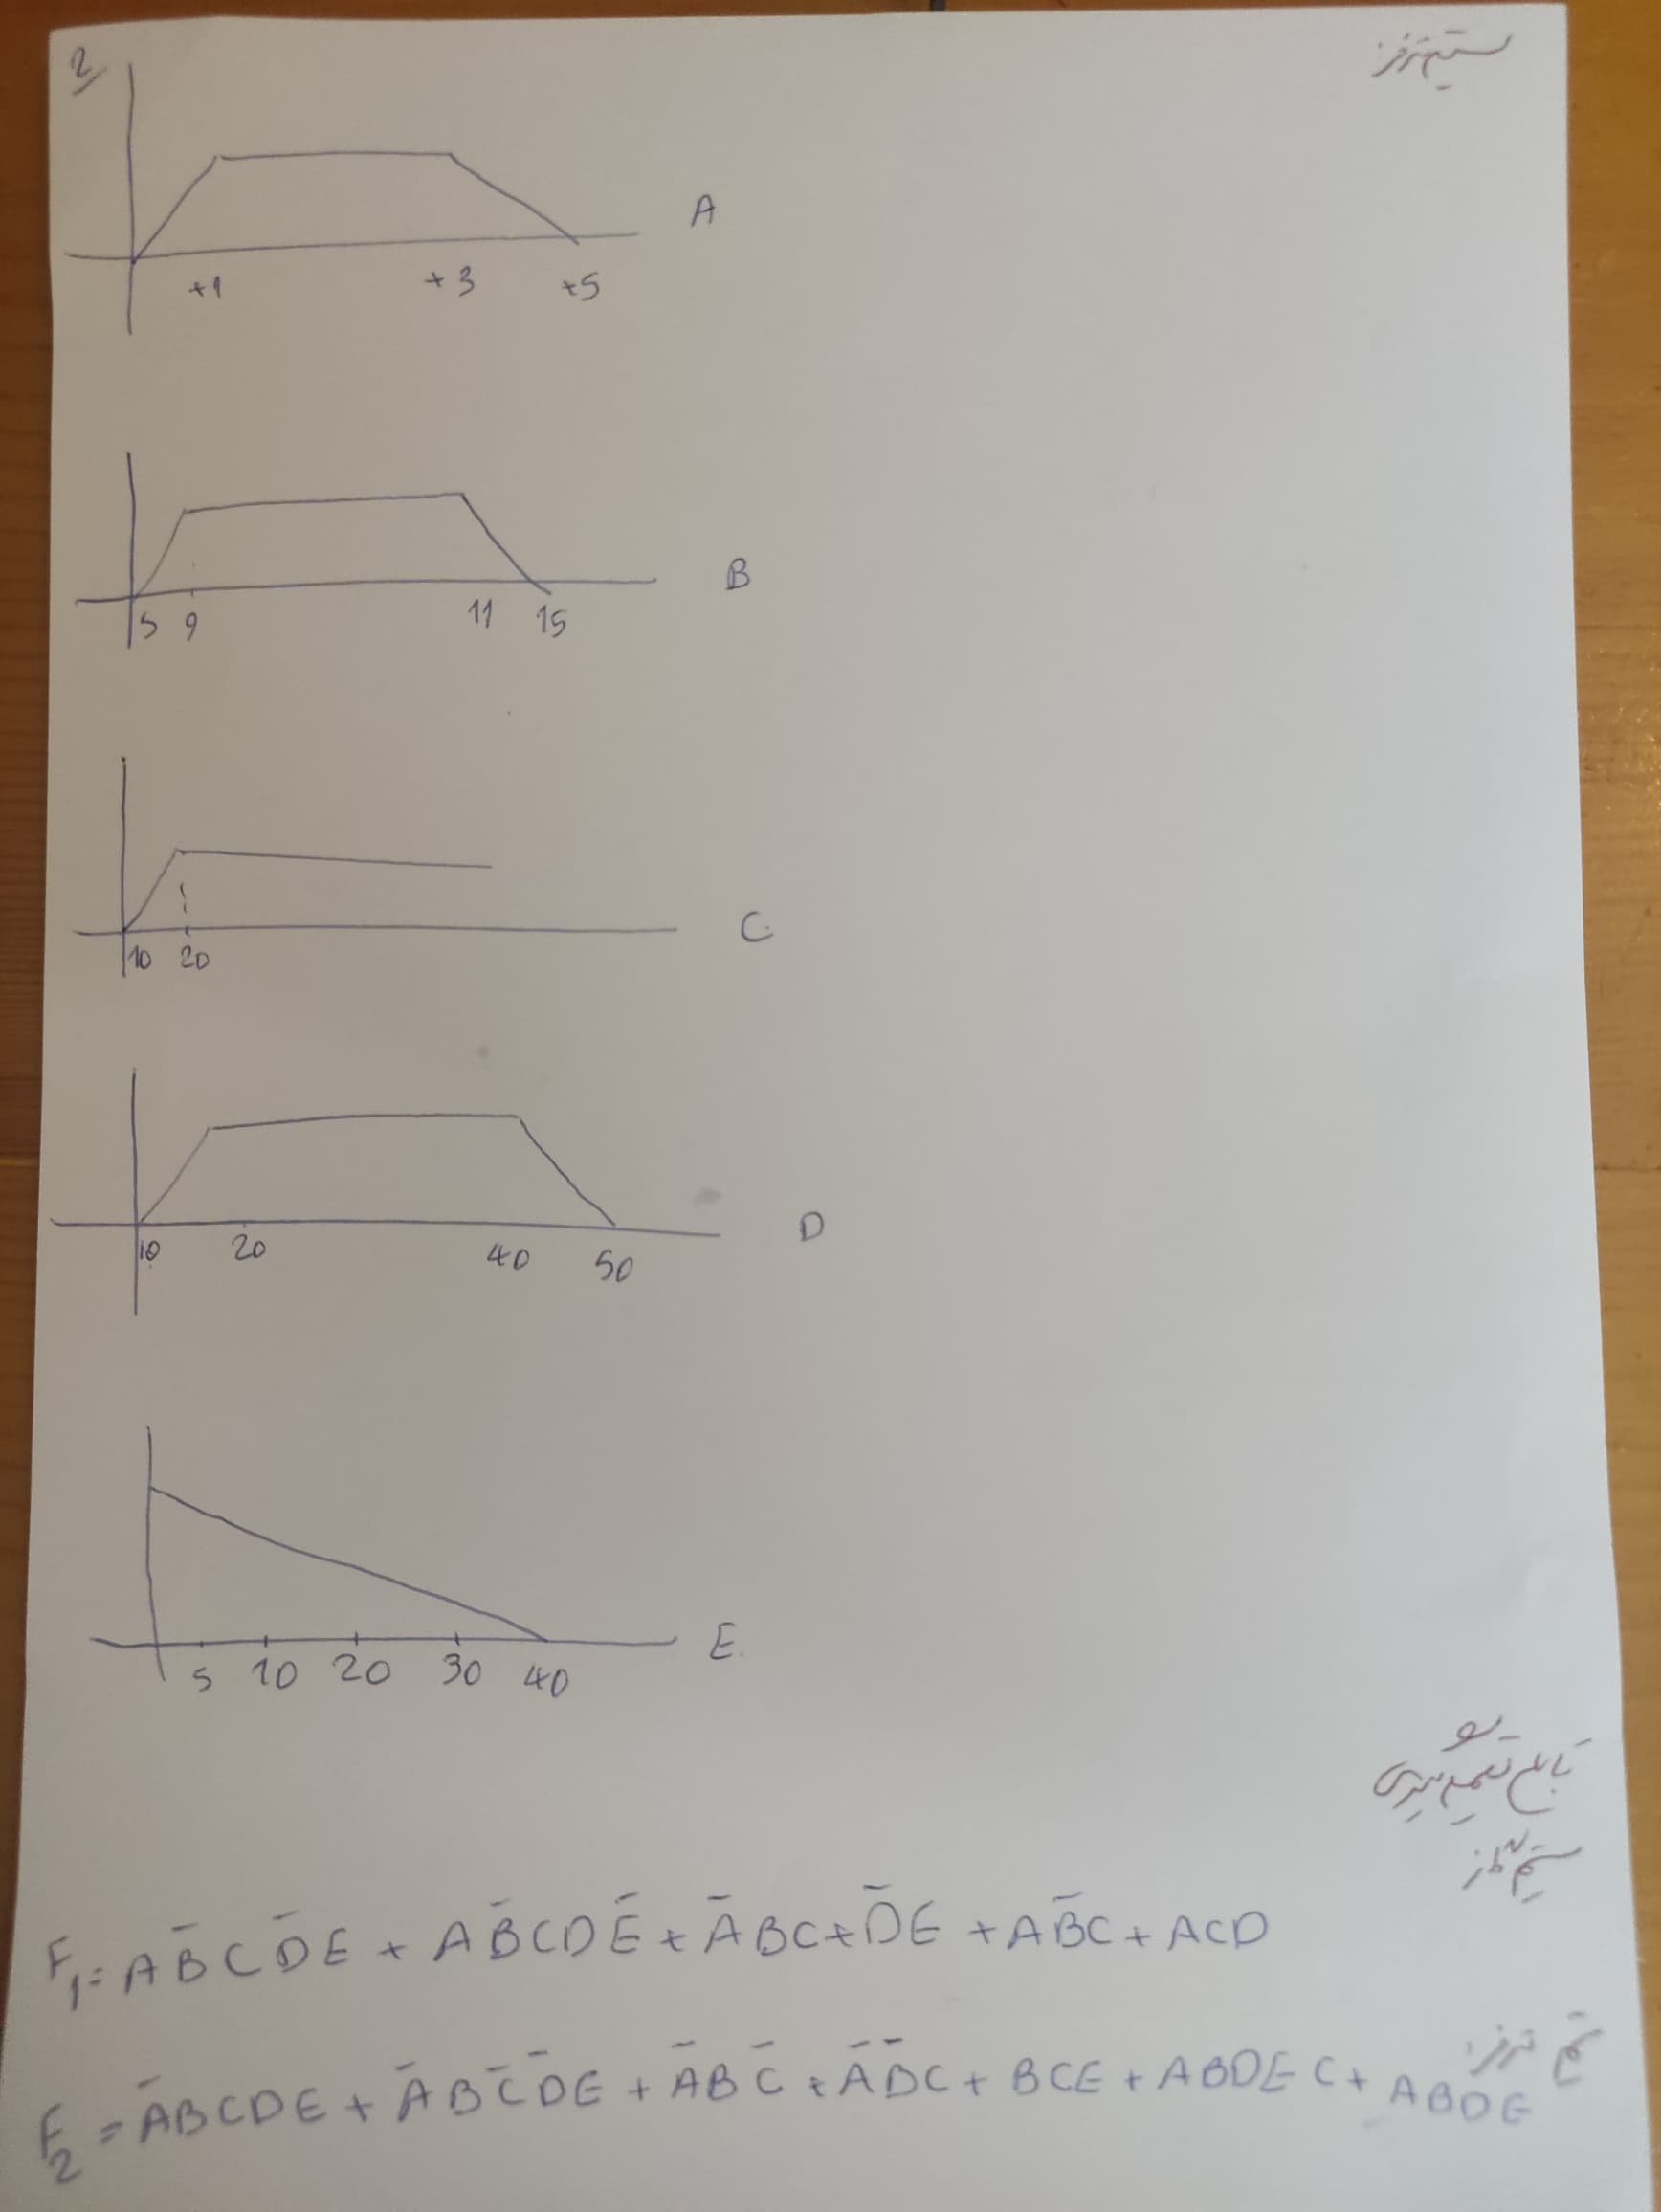 2
سیستم ترمز
A
+1 +3 +5
B
5 9 11 15
C
10 20
D
10 20 40 50
E
5 10 20 30 40
تابع تصمیم گیری
سیستم گاز
F₁ = AB̅CD̅E + AB̅CDE̅ + A̅BC + D̅E + AB̅C + ACD
ترمز:
F₂ = A̅BCDE + A̅BC̅D̅E + A̅BC̅ + A̅B̅C + BCE + ABDEC + ABDE